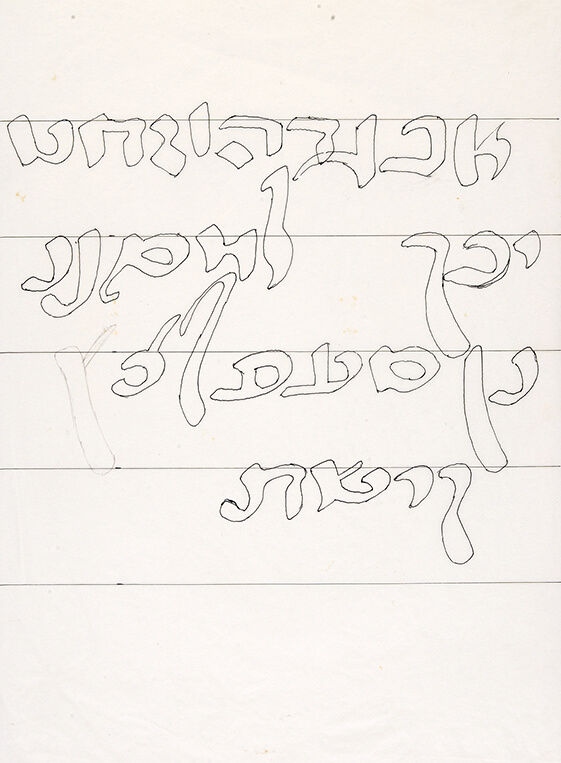 אבגדהוזחט
יכך למם
נןסעפףצץ
קרשת